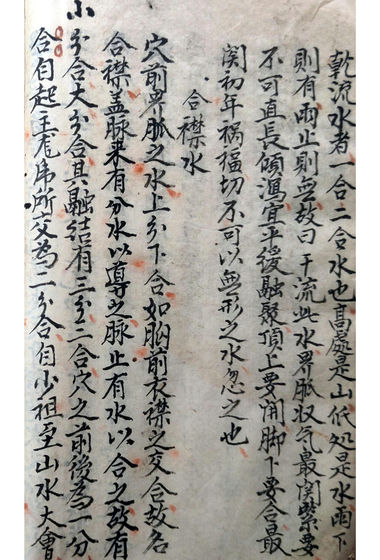 乾流水者一合二合水也高處是山低処是水雨下
則有雨止則無故曰干流此水界脈収气最関緊要
不可直長傾瀉宜平緩融聚頂上要開脚下要合最
関初年禍福切不可以無形之水忽之也
合襟水
穴前界脈之水上分下合如胸前衣襟之交合故名
合襟盖脈来有分水以導之脈止有水以合之故有
小分合大分合其融結有三分二合穴之前後為一分
合自起主尨乕所交為二分合自少祖至山水大會